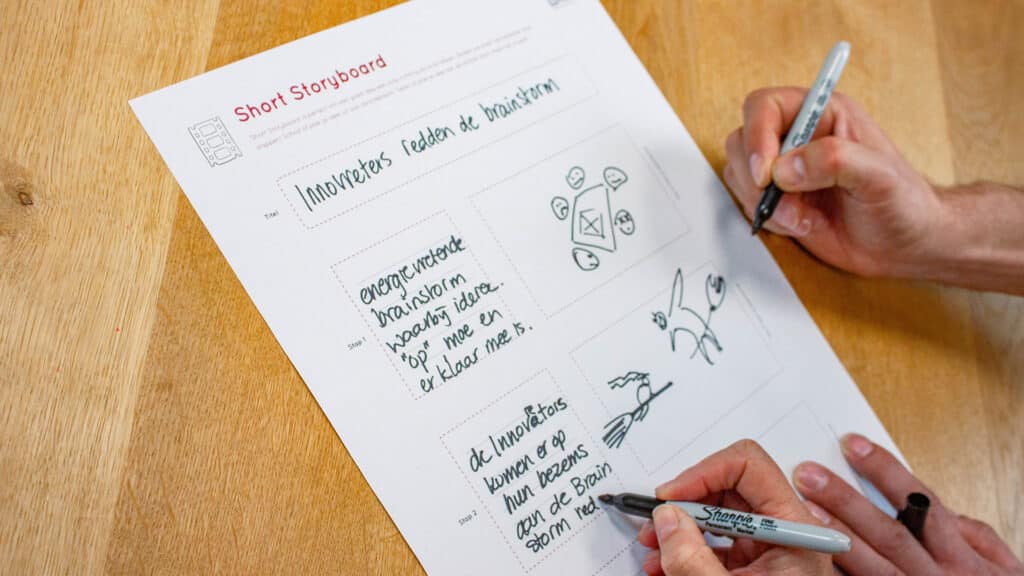 Short Storyboard
Titel
Innovreters redden de brainstorm
Stap 1
energievretende
brainstorm
waarbij iedereen
"op" moe en
er klaar mee is.
Stap 2
de Innovators
komen er op
hun bezems
aan de Brain
storm red
Sharpie